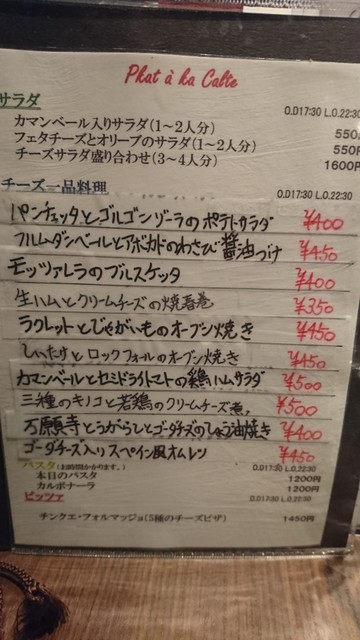 Plat à la Calte
サラダ
O.D17:30 L.O.22:30
カマンベール入りサラダ(1~2人分) 550
フェタチーズとオリーブのサラダ(1~2人分) 550円
チーズサラダ盛り合わせ(3~4人分) 1600円
チーズ一品料理 O.D17:30 L.O.22:30
パンチェッタとゴルゴンゾーラのポテトサラダ ¥400
フルムダンベールとアボカドのわさび醤油づけ ¥450
モッツァレラのブルスケッタ ¥400
生ハムとクリームチーズの焼春巻 ¥350
ラクレットとじゃがいものオーブン焼き ¥450
しいたけとロックフォールのオーブン焼き ¥450
カマンベールとセミドライトマトの鶏ハムサラダ ¥500
三種のキノコと若鶏のクリームチーズ煮 ¥500
万願寺とうがらしとゴーダチーズのしょう油焼き ¥400
ゴーダチーズ入りスペイン風オムレツ ¥450
パスタ(お時間かかります。) O.D17:30 L.O.22:30
本日のパスタ 1200円
カルボナーラ 1200円
ピッツァ O.D17:30 L.O.22:30
チンクエ・フォルマッジョ(5種のチーズピザ) 1450円